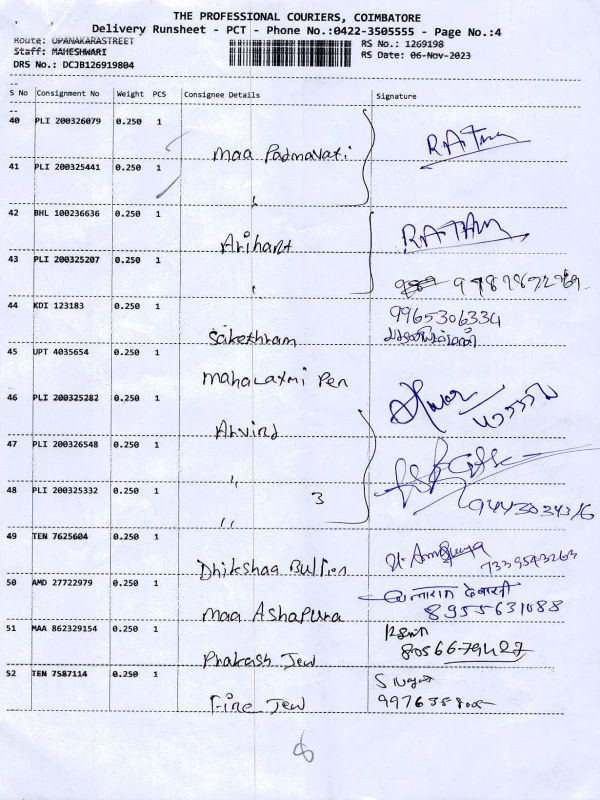 THE PROFESSIONAL COURIERS, COIMBATORE
Delivery Runsheet - PCT - Phone No.:0422-3505555 - Page No.:4
Route: OPANAKARASTREET
RS No.: 1269198
Staff: MAHESHWARI
RS Date: 06-Nov-2023
DRS No.: DCJB126919804
S No Consignment No Weight PCS Consignee Details Signature
40 PLI 200326079 0.250 1
Maa Padmavati
41 PLI 200325441 0.250 1
42 BHL 100236636 0.250 1
Arihant
43 PLI 200325207 0.250 1
44 KDI 123183 0.250 1 9965306334
Sakethram
45 UPT 4035654 0.250 1
Mahalaxmi Pen
46 PLI 200325282 0.250 1
Arvind
47 PLI 200326548 0.250 1
"
48 PLI 200325332 0.250 1 3
"
49 TEN 7625604 0.250 1
Dhikshaa Bullion 7339543263
50 AMD 27722979 0.250 1
Maa Ashapura 8955631088
51 MAA 862329154 0.250 1
Prakash Jew 8056679427
52 TEN 7587114 0.250 1
Fine Jew